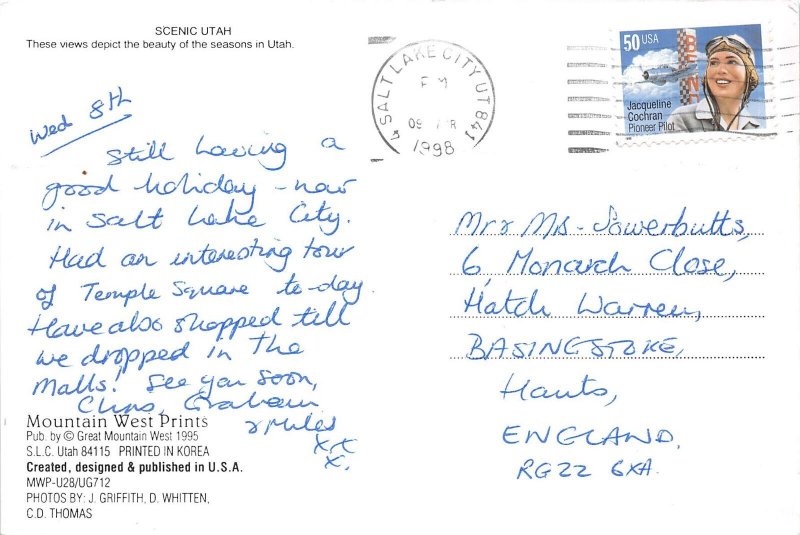 SCENIC UTAH
These views depict the beauty of the seasons in Utah.
Wed 8th
Still having a
good holiday - now
in Salt Lake City.
Had an interesting tour
of Temple Square to-day.
Have also shopped till
we dropped in the
Malls! See you soon,
Chris, Graham
& Miles
xx
x.
Mountain West Prints
Pub. by © Great Mountain West 1995
S.L.C. Utah 84115 PRINTED IN KOREA
Created, designed & published in U.S.A.
MWP-U28/UG712
PHOTOS BY: J. GRIFFITH, D. WHITTEN,
C.D. THOMAS
SALT LAKE CITY UT 841
PM
09
1998
50 USA
Jacqueline
Cochran
Pioneer Pilot
Mr & Mrs - Sowerbutts,
6, Monarch Close,
Hatch Warren,
BASINGSTOKE,
Hants,
ENGLAND.
RG22 6XA.